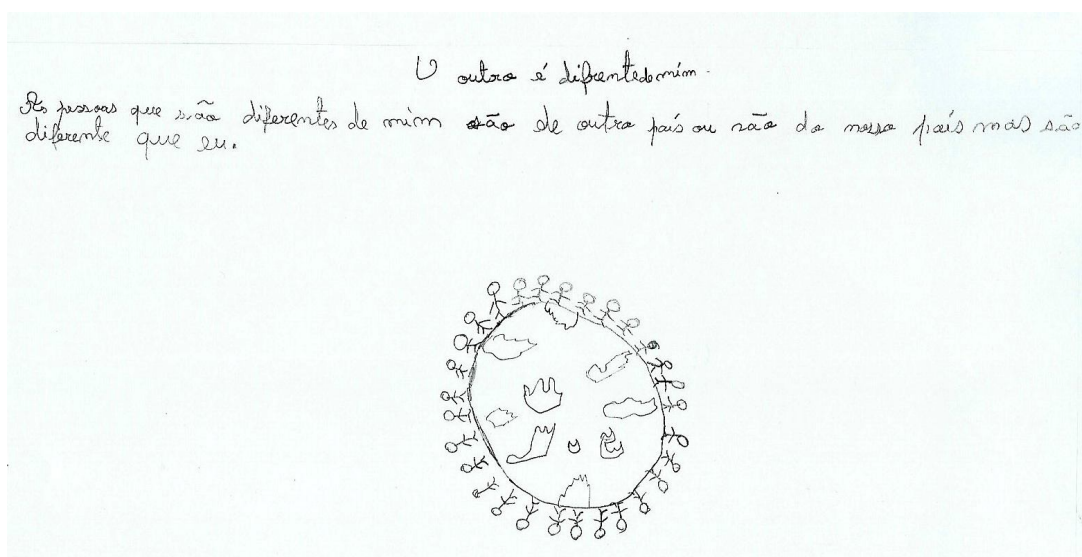 O outro é difrentedemim.
As pessoas que são diferentes de mim são de outro país ou não do nosso país mas são
diferente que eu.